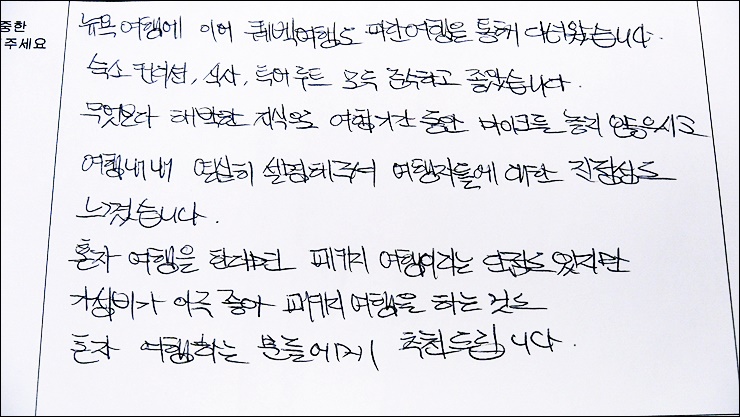 중한
주세요
뉴욕 여행에 이어 퀘벡여행도 파란여행을 통해 다녀왔습니다.
숙소 컨디션, 식사, 투어루트 모두 만족하고 좋았습니다.
무엇보다 해박한 지식으로 여행기간 동안 마이크를 놓지 않으시고
여행내내 열심히 설명해주셔 여행자들에 대한 진정성도
느꼈습니다.
혼자 여행을 한다면 패키지 여행이라는 단점도 있지만
가성비가 아주 좋아 패키지여행을 하는 것도
혼자 여행하는 분들에게 추천드립니다.